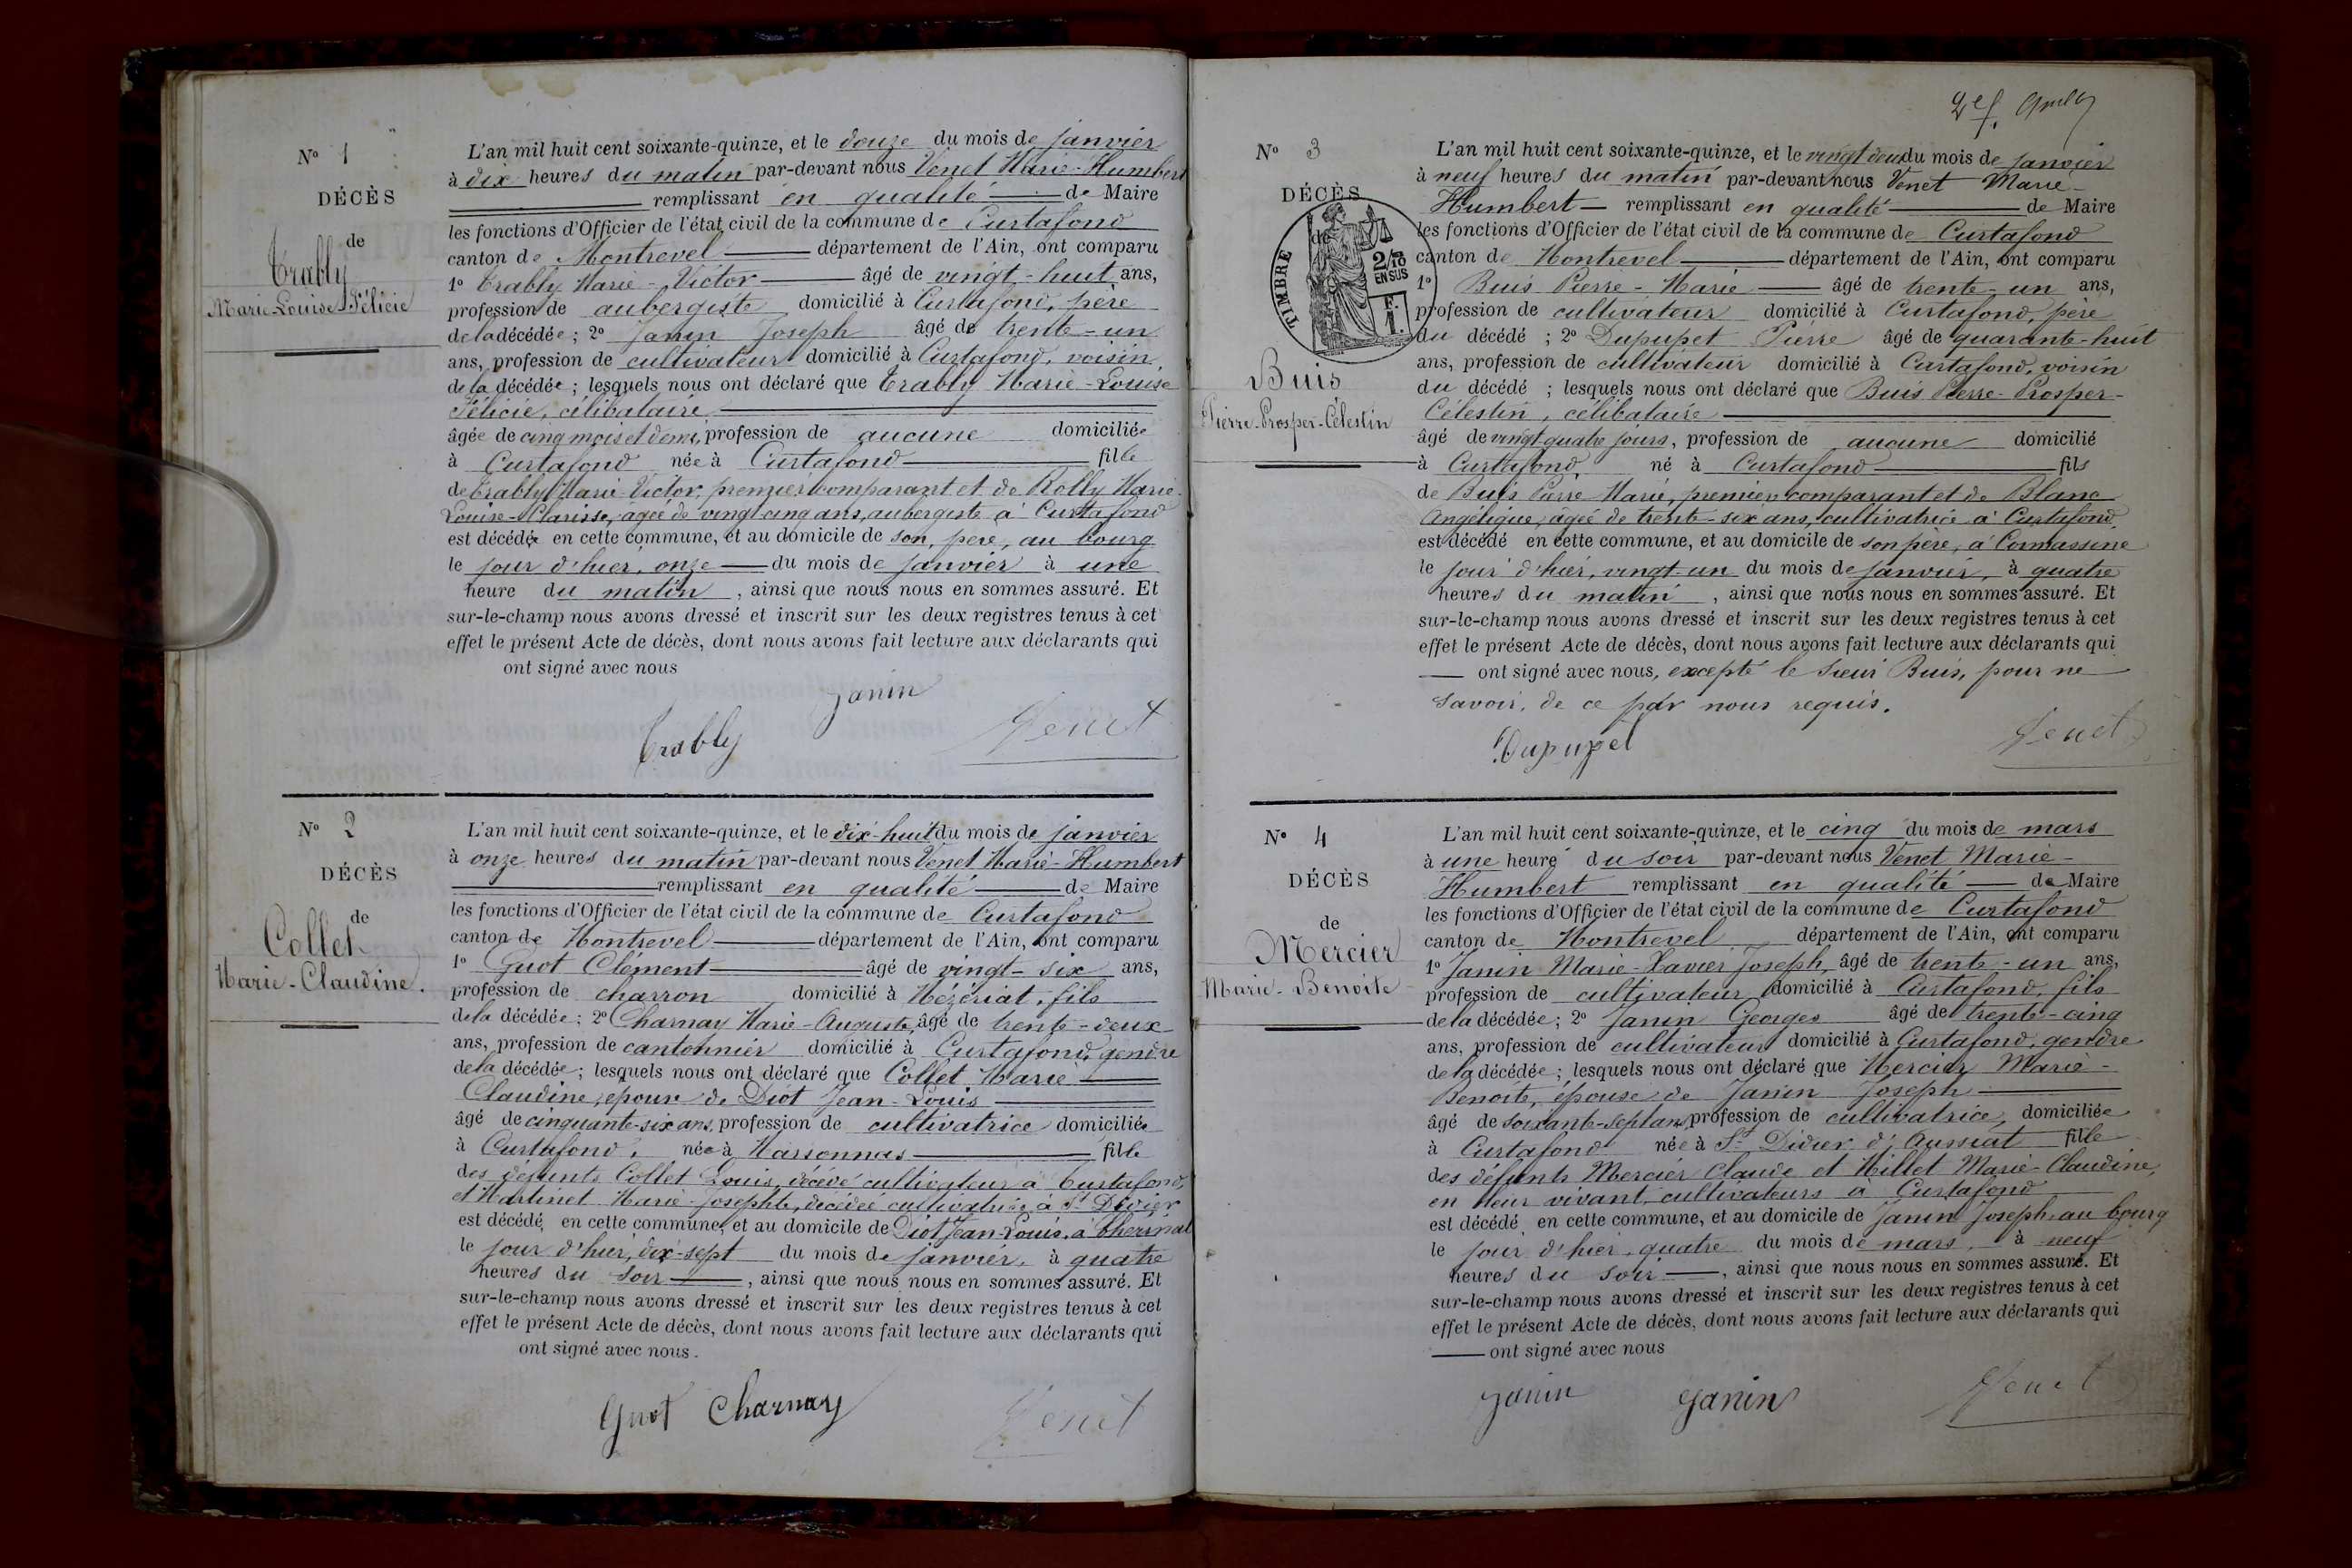 N° 1
DÉCÈS
de
Trably
Marie-Louise-Félicie
L'an mil huit cent soixante-quinze, et le douze du mois de janvier
à dix heures du matin par-devant nous Venet Marie-Humbert
remplissant en qualité de Maire
les fonctions d'Officier de l'état civil de la commune de Curtafond
canton de Montrevel département de l'Ain, ont comparu
1° Trably Marie-Victor âgé de vingt-huit ans,
profession de aubergiste domicilié à Curtafond, père
de la décédée; 2° Janin Joseph âgé de trente-un
ans, profession de cultivateur domicilié à Curtafond, voisin
de la décédée; lesquels nous ont déclaré que Trably Marie-Louise
Félicie, célibataire
âgée de cinq mois et demi, profession de aucune domiciliée
à Curtafond née à Curtafond fille
de Trably Marie-Victor, premier comparant et de Rolly Marie-
Louise-Clarisse, âgée de vingt cinq ans, aubergiste à Curtafond
est décédée en cette commune, et au domicile de son père, au bourg
le jour d'hier, onze du mois de janvier à une
heure du matin, ainsi que nous nous en sommes assuré. Et
sur-le-champ nous avons dressé et inscrit sur les deux registres tenus à cet
effet le présent Acte de décès, dont nous avons fait lecture aux déclarants qui
ont signé avec nous
Janin
Trably Venet
N° 2
DÉCÈS
de
Collet
Marie-Claudine.
L'an mil huit cent soixante-quinze, et le dix-huit du mois de janvier
à onze heures du matin par-devant nous Venet Marie-Humbert
remplissant en qualité de Maire
les fonctions d'Officier de l'état civil de la commune de Curtafond
canton de Montrevel département de l'Ain, ont comparu
1° Guot Clément âgé de vingt-six ans,
profession de charron domicilié à Mézériat, fils
de la décédée; 2° Charnay Marie-Auguste, âgé de trente-deux
ans, profession de cantonnier domicilié à Curtafond, gendre
de la décédée; lesquels nous ont déclaré que Collet Marie
Claudine, épouse de Diot Jean-Louis
âgé de cinquante-six ans, profession de cultivatrice domiciliée
à Curtafond, née à Marsonnas fille
des défunts Collet Louis, décédé cultivateur à Curtafond,
et Martinet Marie-Josephte, décédée cultivatrice à St Didier
est décédé en cette commune, et au domicile de Diot Jean-Louis, à
le jour d'hier, dix-sept du mois de janvier, à quatre
heures du soir, ainsi que nous nous en sommes assuré. Et
sur-le-champ nous avons dressé et inscrit sur les deux registres tenus à cet
effet le présent Acte de décès, dont nous avons fait lecture aux déclarants qui
ont signé avec nous.
Guot Charnay Venet
N° 3
DÉCÈS
de
TIMBRE
2/10
EN SUS
F.
1.
Buis
Pierre-Prosper-Célestin
L'an mil huit cent soixante-quinze, et le vingt deux du mois de janvier
à neuf heures du matin par-devant nous Venet Marie-
Humbert remplissant en qualité de Maire
les fonctions d'Officier de l'état civil de la commune de Curtafond
canton de Montrevel département de l'Ain, ont comparu
1° Buis Pierre-Marie âgé de trente-un ans,
profession de cultivateur domicilié à Curtafond, père
du décédé; 2° Dupupet Pierre âgé de quarante-huit
ans, profession de cultivateur domicilié à Curtafond, voisin
du décédé; lesquels nous ont déclaré que Buis Pierre-Prosper-
Célestin, célibataire
âgé de vingt quatre jours, profession de aucune domicilié
à Curtafond, né à Curtafond fils
de Buis Pierre Marie, premier comparant et de Blanc
Angélique, âgée de trente-six ans, cultivatrice à Curtafond
est décédé en cette commune, et au domicile de son père, à Cormassine
le jour d'hier, vingt-un du mois de janvier, à quatre
heures du matin, ainsi que nous nous en sommes assuré. Et
sur-le-champ nous avons dressé et inscrit sur les deux registres tenus à cet
effet le présent Acte de décès, dont nous avons fait lecture aux déclarants qui
ont signé avec nous, excepté le sieur Buis, pour ne
savoir, de ce par nous requis.
Dupupet Venet
N° 4
DÉCÈS
de
Mercier
Marie-Benoite
L'an mil huit cent soixante-quinze, et le cinq du mois de mars
à une heure du soir par-devant nous Venet Marie-
Humbert remplissant en qualité de Maire
les fonctions d'Officier de l'état civil de la commune de Curtafond
canton de Montrevel département de l'Ain, ont comparu
1° Janin Marie-Xavier Joseph, âgé de trente-un ans,
profession de cultivateur domicilié à Curtafond, fils
de la décédée; 2° Janin Georges âgé de trente-cinq
ans, profession de cultivateur domicilié à Curtafond, gendre
de la décédée; lesquels nous ont déclaré que Mercier Marie-
Benoite, épouse de Janin Joseph
âgé de soixante-sept ans, profession de cultivatrice, domiciliée
à Curtafond née à St Didier d'Aussiat fille
des défunts Mercier Claude et Millet Marie-Claudine,
en leur vivant cultivateurs à Curtafond
est décédé en cette commune, et au domicile de Janin Joseph, au bourg
le jour d'hier, quatre du mois de mars, à neuf
heures du soir, ainsi que nous nous en sommes assuré. Et
sur-le-champ nous avons dressé et inscrit sur les deux registres tenus à cet
effet le présent Acte de décès, dont nous avons fait lecture aux déclarants qui
ont signé avec nous
Janin Janin Venet